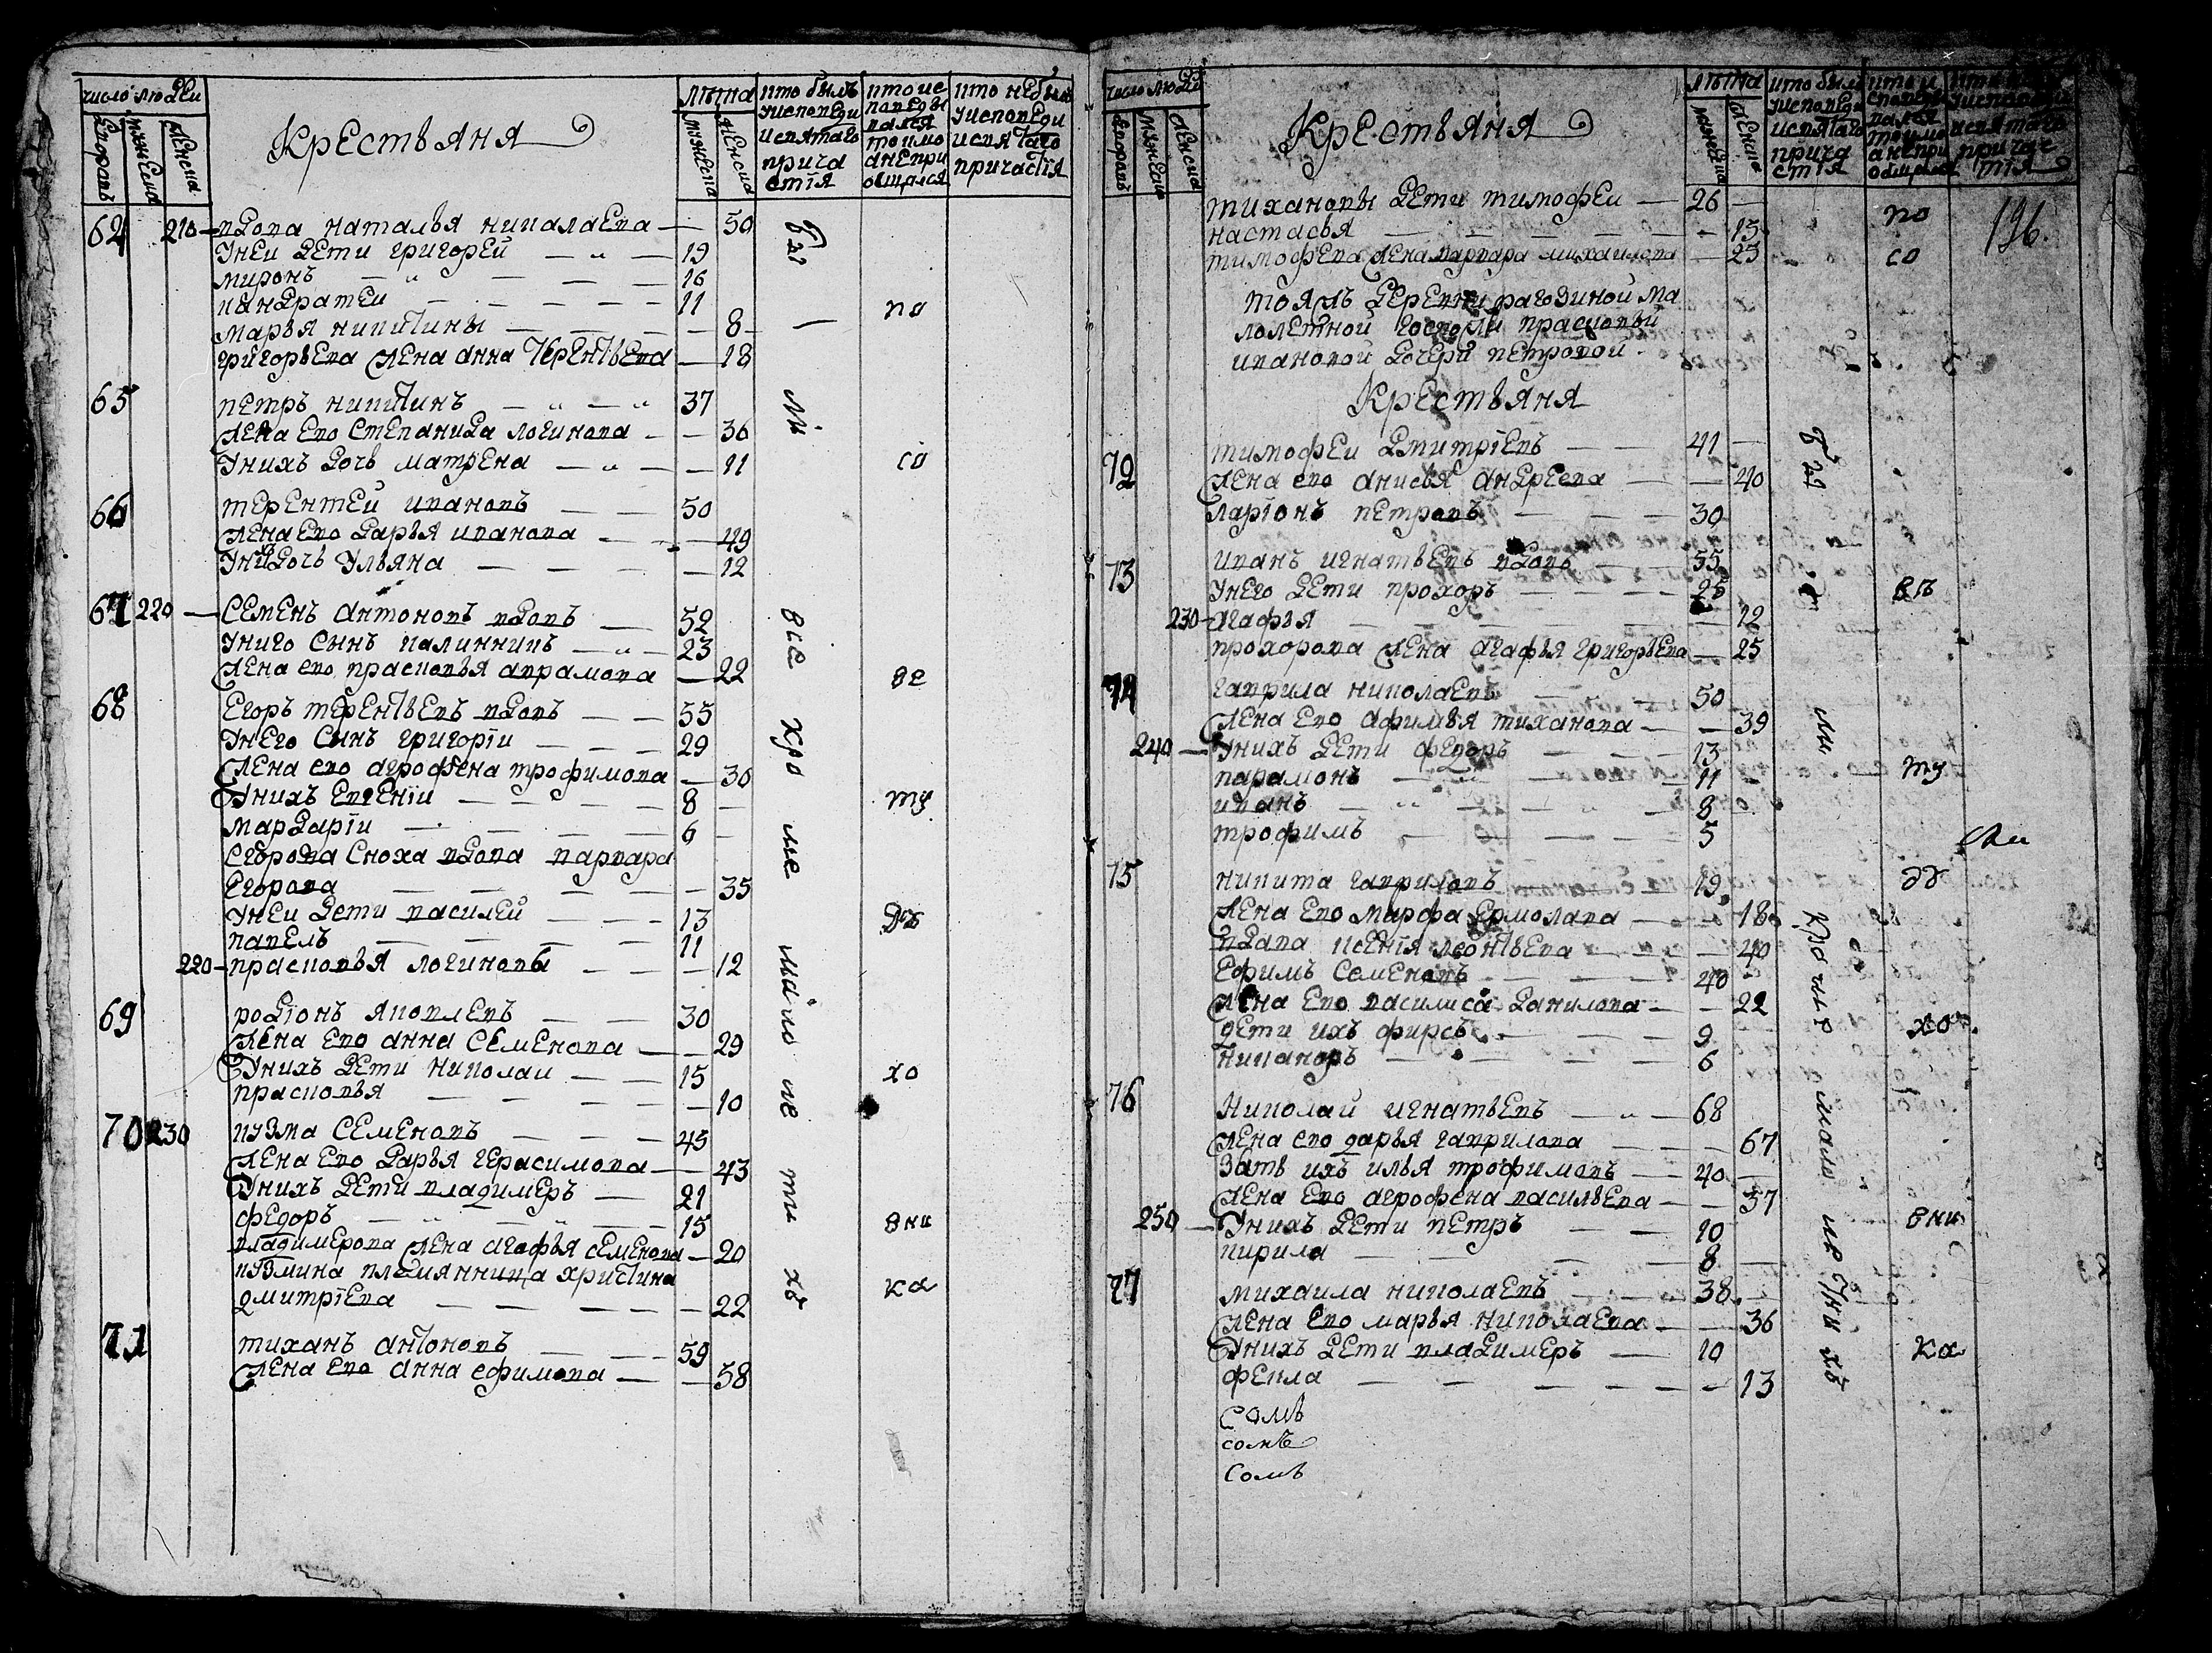 число людеи
дворовъ мужеска женска
Крестьяня
лѣта
мужеска женска
кто былъ
уисповеди
исвятаго
прича
стїя
кто ис
поведы
вался
токмо
анепри
общался
кто небылъ
уисповеди
исвятаго
причастїя
64 210 вдова наталья николаева 50
Унеи дети григореи 19
миронъ 16
панкратеи 11
марья никитины 8
григорьева жена анна терентьева 18
65 петръ никитинъ 37
жена ево степанида логинова 36
Унихъ дочь матрена 11
66 терентеи ивановъ 50
жена ево дарья иванова 49
Унихъ дочь ульяна 12
67 220 семенъ антоновъ вдовъ 52
Униго сынъ калинникъ 23
жена ево прасковья аврамова 22
68 егоръ терентьевъ вдовъ 55
Унего сынъ григорїи 29
жена ево агрофена трофимова 30
Унихъ евгенїи 8
мардарїи 6
егорова сноха вдова варвара
егорова 35
Унеи дети василеи 13
павелъ 11
220 прасковья логиновы 12
69 родїонъ яковлевъ 30
жена ево анна семенова 29
Унихъ дети николаи 15
прасковья 10
70 230 кузма семеновъ 45
жена ево дарья герасимова 43
Унихъ дети владимеръ 21
федоръ 15
владимерова жена агафья семенова 20
кузмина племянница христина
дмитрїева 22
71 тиханъ антоновъ 59
жена ево анна ефимова 58
бы
ли
все
кро
ме
мало
ле
тни
хъ
по
со
ве
ту
дх
хо
вни
ка
число людеи
дворовъ мужеска женска
Крестьяня
лѣта
мужеска женска
кто былъ
уисповеди
исвятаго
прича
стїя
кто и
споведы
вался
токмо
анепри
общался
исвятаго
причас
тїя
196.
тихановы дети тимофеи 26
настасья 13
тимофева жена варвара михаилова 23
тояжъ деревни рагозиной ма
лолетной госпожи прасковьи
ивановой дочери петровой
Крестьяня
72 тимофеи дмитрїевъ 41
жена ево анисья андреева 40
ларїонъ петровъ 30
73 иванъ игнатьевъ вдовъ 55
Унего дети прохоръ 25
230 агафья 12
прохорова жена агафья григорьева 25
74 гаврила николаевъ 50
жена ево афимья тиханова 39
240 Унихъ дети федоръ 13
парамонъ 11
иванъ 8
трофимъ 5
75 никита гавриловъ 19
жена ево марфа ермолава 18
вдава ксенїя леонтьева 40
ефимъ семеновъ 40
жена ево василиса данилова 22
дети ихъ фирсъ 9
никаноръ 6
76 николаи игнатьевъ 68
жена ево дарья гаврилова 67
зать ихъ илья трофимовъ 40
жена ево агрофена васильева 37
250 Унихъ дети петръ 10
кирила 8
77 михаила николаевъ 38
жена ево марья николаева 36
Унихъ дети владимеръ 10
фекла 13
сомъ
сомъ
сомъ
бы
ли
по
со
въ
ту
дх
хо
вни
ка